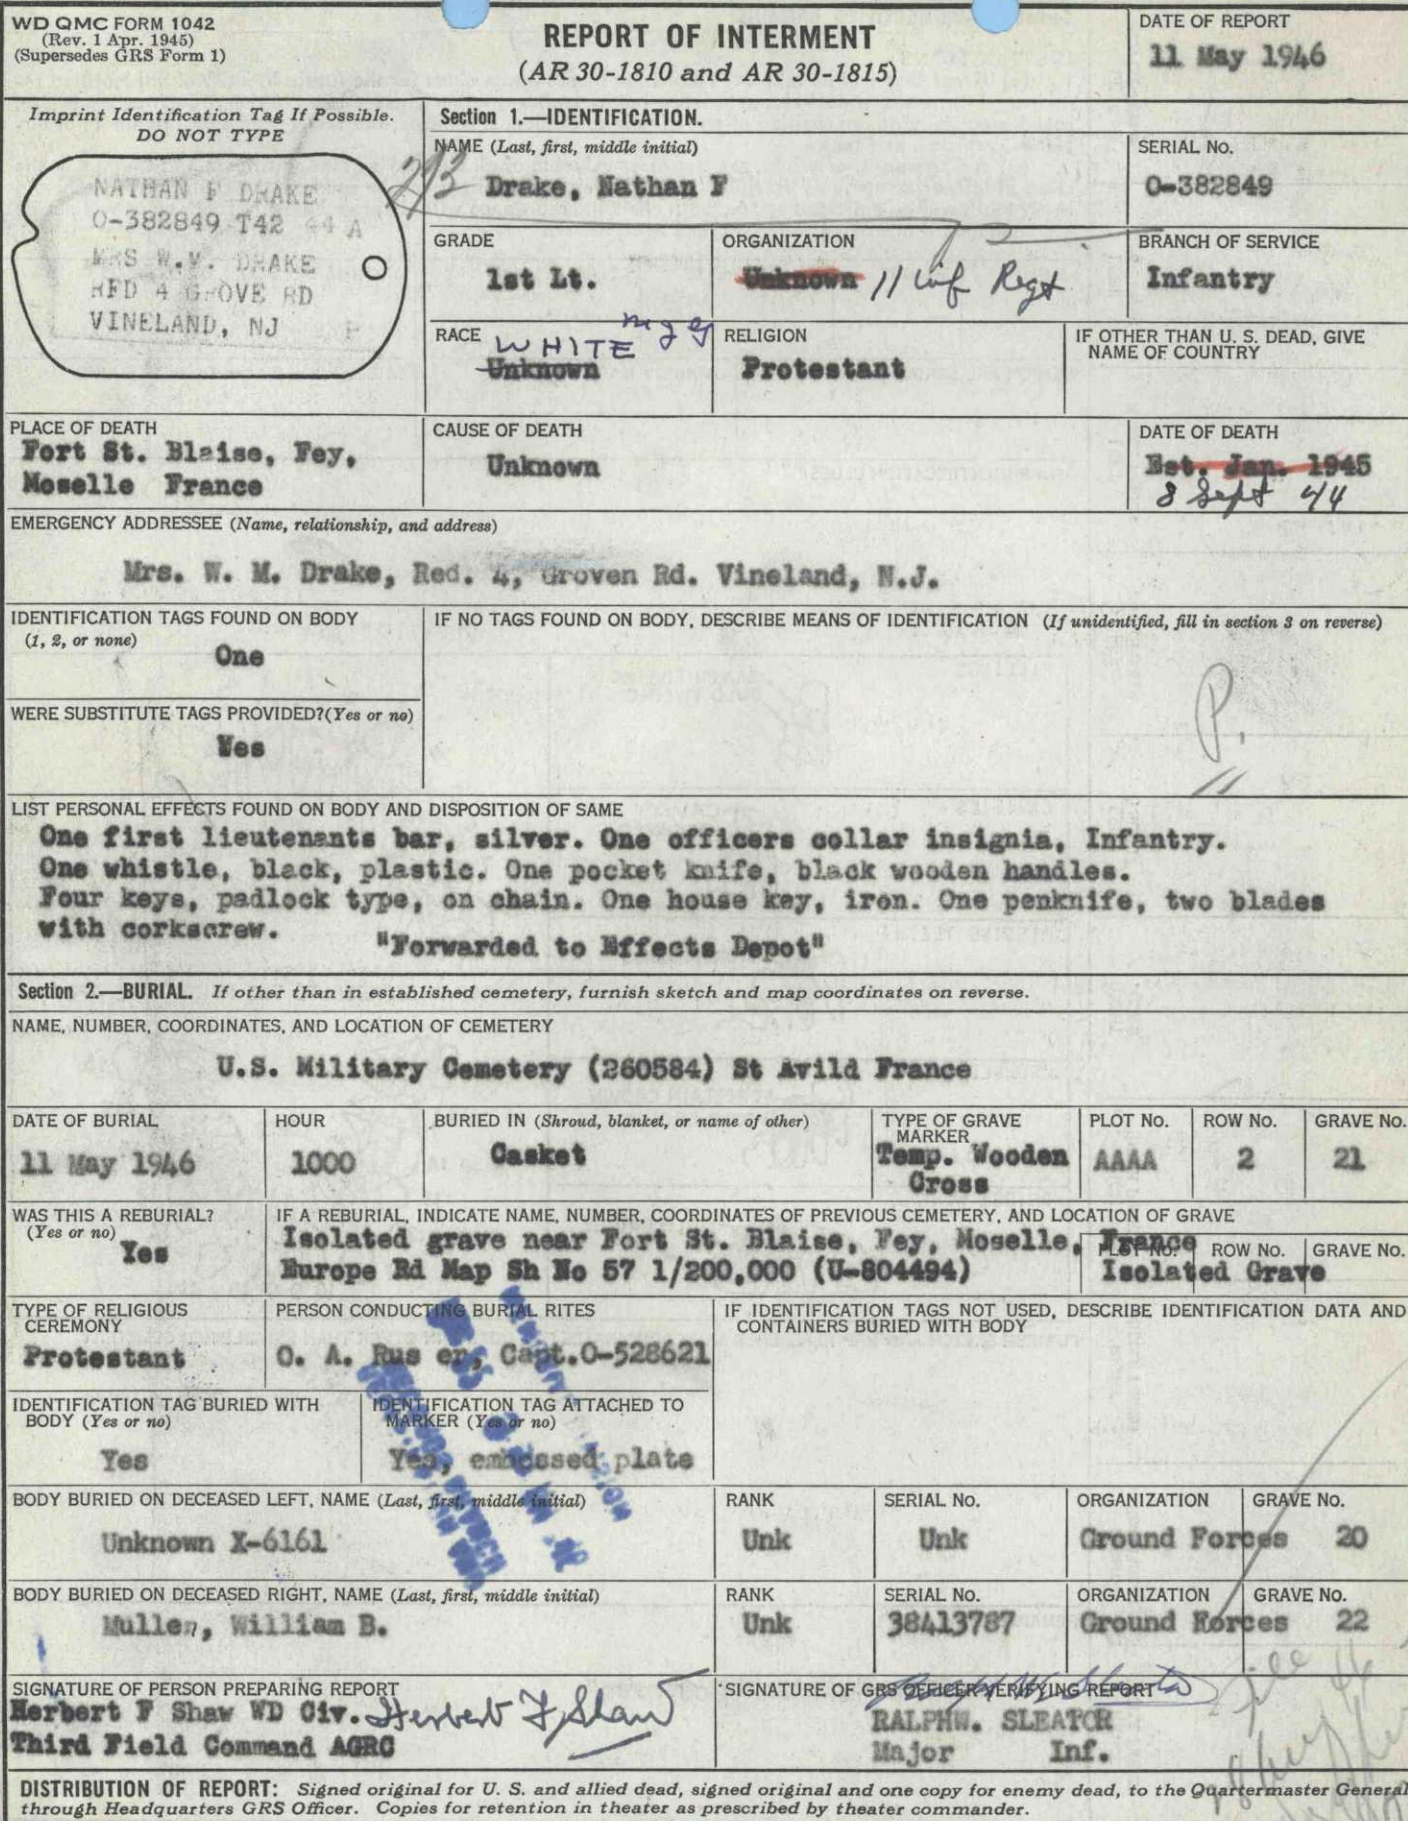 WD QMC FORM 1042
(Rev. 1 Apr. 1945)
(Supersedes GRS Form 1)
REPORT OF INTERMENT
(AR 30-1810 and AR 30-1815)
DATE OF REPORT
11 May 1946
Imprint Identification Tag If Possible.
DO NOT TYPE
NATHAN F DRAKE
O-382849 T42 44 A
MRS W.M. DRAKE
RFD 4 GROVE RD
VINELAND, NJ P
Section 1.—IDENTIFICATION.
NAME (Last, first, middle initial)
Drake, Nathan F
SERIAL No.
O-382849
GRADE
1st Lt.
ORGANIZATION
Unknown 11 Inf Regt
BRANCH OF SERVICE
Infantry
RACE
WHITE
Unknown
RELIGION
Protestant
IF OTHER THAN U. S. DEAD, GIVE
NAME OF COUNTRY
PLACE OF DEATH
Fort St. Blaise, Fey,
Moselle France
CAUSE OF DEATH
Unknown
DATE OF DEATH
Est. Jan. 1945
8 Sept 44
EMERGENCY ADDRESSEE (Name, relationship, and address)
Mrs. W. M. Drake, Red. 4, Groven Rd. Vineland, N.J.
IDENTIFICATION TAGS FOUND ON BODY
(1, 2, or none)
One
IF NO TAGS FOUND ON BODY, DESCRIBE MEANS OF IDENTIFICATION (If unidentified, fill in section 3 on reverse)
P.
WERE SUBSTITUTE TAGS PROVIDED?(Yes or no)
Yes
LIST PERSONAL EFFECTS FOUND ON BODY AND DISPOSITION OF SAME
One first lieutenants bar, silver. One officers collar insignia, Infantry.
One whistle, black, plastic. One pocket knife, black wooden handles.
Four keys, padlock type, on chain. One house key, iron. One penknife, two blades
with corkscrew. "Forwarded to Effects Depot"
Section 2.—BURIAL. If other than in established cemetery, furnish sketch and map coordinates on reverse.
NAME, NUMBER, COORDINATES, AND LOCATION OF CEMETERY
U.S. Military Cemetery (260584) St Avild France
DATE OF BURIAL
11 May 1946
HOUR
1000
BURIED IN (Shroud, blanket, or name of other)
Casket
TYPE OF GRAVE
MARKER
Temp. Wooden
Cross
PLOT No.
AAAA
ROW No.
2
GRAVE No.
21
WAS THIS A REBURIAL?
(Yes or no)
Yes
IF A REBURIAL, INDICATE NAME, NUMBER, COORDINATES OF PREVIOUS CEMETERY, AND LOCATION OF GRAVE
Isolated grave near Fort St. Blaise, Fey, Moselle, France
Europe Rd Map Sh No 57 1/200,000 (U-804494)
PLOT No. ROW No. GRAVE No.
Isolated Grave
TYPE OF RELIGIOUS
CEREMONY
Protestant
PERSON CONDUCTING BURIAL RITES
O. A. Rus er, Capt.O-528621
IF IDENTIFICATION TAGS NOT USED, DESCRIBE IDENTIFICATION DATA AND
CONTAINERS BURIED WITH BODY
IDENTIFICATION TAG BURIED WITH
BODY (Yes or no)
Yes
IDENTIFICATION TAG ATTACHED TO
MARKER (Yes or no)
Yes, embossed plate
BODY BURIED ON DECEASED LEFT, NAME (Last, first, middle initial)
Unknown X-6161
RANK
Unk
SERIAL No.
Unk
ORGANIZATION
Ground Forces
GRAVE No.
20
BODY BURIED ON DECEASED RIGHT, NAME (Last, first, middle initial)
Mullen, William B.
RANK
Unk
SERIAL No.
38413787
ORGANIZATION
Ground Forces
GRAVE No.
22
SIGNATURE OF PERSON PREPARING REPORT
Herbert F Shaw WD Civ. Herbert F. Shaw
Third Field Command AGRC
SIGNATURE OF GRS OFFICER VERIFYING REPORT
RALPHW. SLEATOR
Major Inf.
DISTRIBUTION OF REPORT: Signed original for U. S. and allied dead, signed original and one copy for enemy dead, to the Quartermaster General
through Headquarters GRS Officer. Copies for retention in theater as prescribed by theater commander.